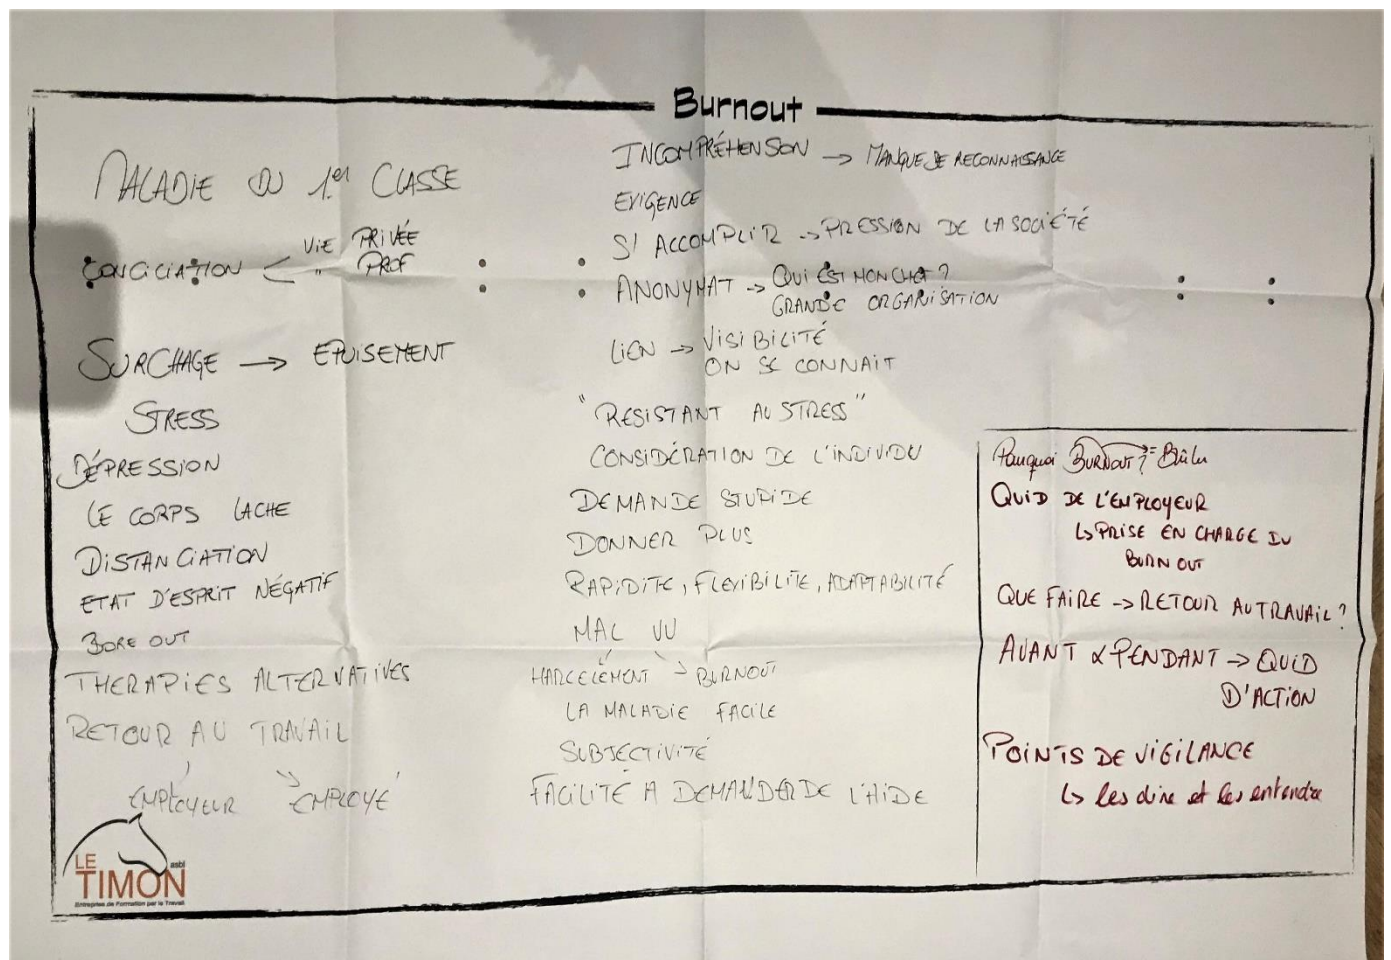 Burnout
MALADIE DU 1er CLASSE
CONCILIATION
VIE PRIVÉE
" PROF
SURCHAGE → EPUISEMENT
STRESS
DÉPRESSION
LE CORPS LACHE
DISTANCIATION
ETAT D'ESPRIT NÉGATIF
BORE OUT
THERAPIES ALTERNATIVES
RETOUR AU TRAVAIL
EMPLOYEUR EMPLOYÉ
INCOMPRÉHENSON → MANQUE DE RECONNAISSANCE
EXIGENCE
S'ACCOMPLIR → PRESSION DE LA SOCIÉTÉ
ANONYMAT → QUI EST MON CHEF ?
GRANDE ORGANISATION
LIEN → VISIBILITÉ
ON SE CONNAIT
"RESISTANT AU STRESS"
CONSIDÉRATION DE L'INDIVIDU
DEMANDE STUPIDE
DONNER PLUS
RAPIDITE, FLEXIBILITE, ADAPTABILITÉ
MAL VU
HARCELEMENT → BURNOUT
LA MALADIE FACILE
SUBJECTIVITÉ
FACILITÉ A DEMANDER DE L'AIDE
Pourquoi BURNOUT ? = Brûler
QUID DE L'EMPLOYEUR
↳ PRISE EN CHARGE DU
BURN OUT
QUE FAIRE → RETOUR AU TRAVAIL ?
AVANT & PENDANT → QUID
D'ACTION
POINTS DE VIGILANCE
↳ les dire et les entendre
LE
TIMON asbl
Entreprise de Formation par le Travail